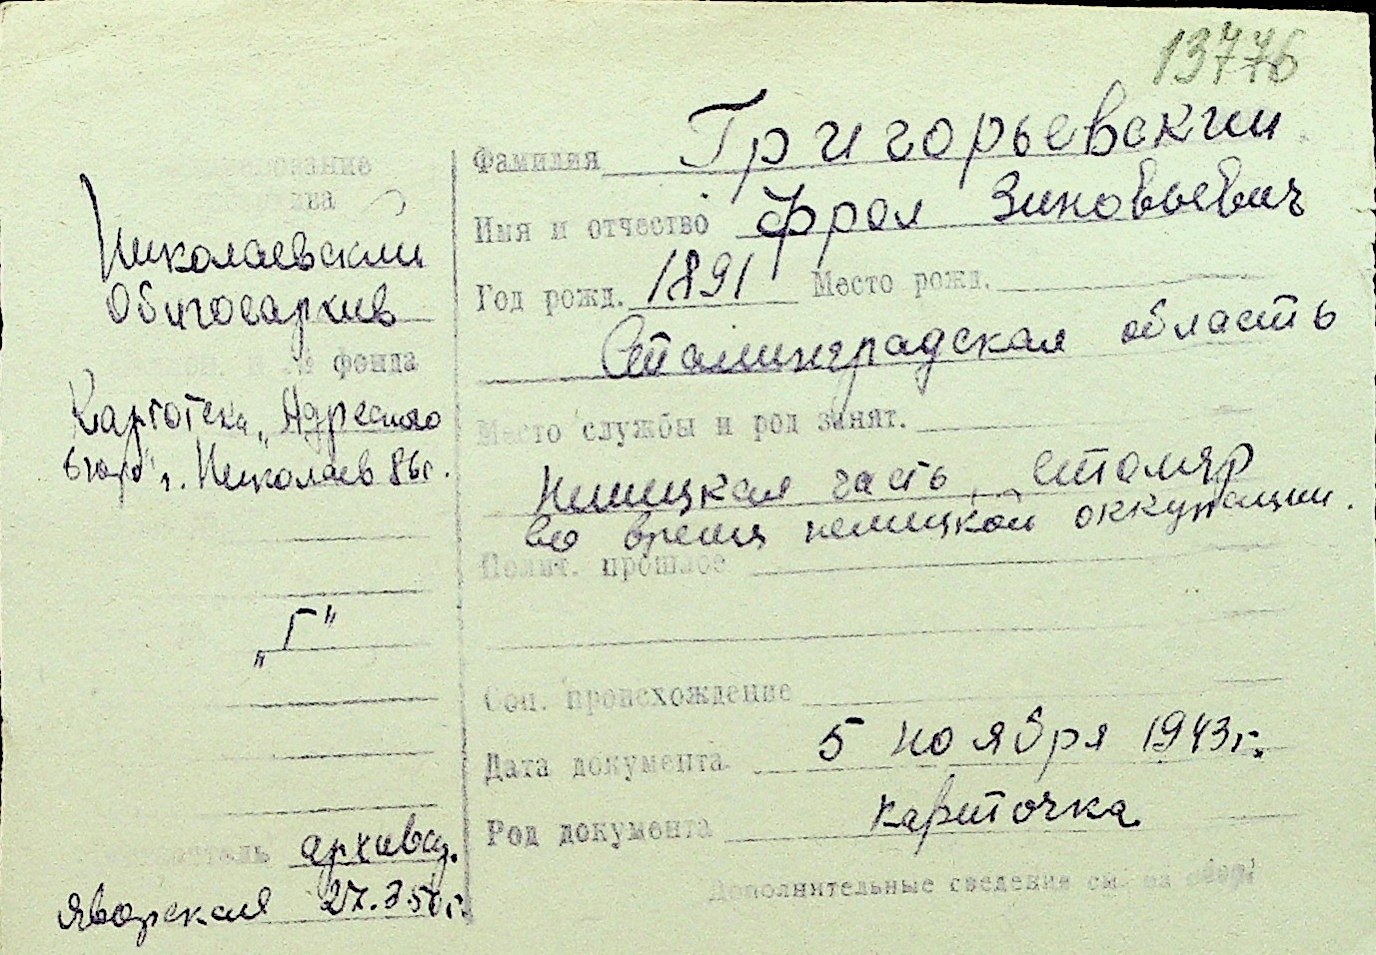 13776
Фамилия Григорьевский
Имя и отчество Фрол Зиновьевич
Год рожд. 1891 Место рожд.
Сталинградская область
Место службы и род занят.
Немецкая часть, столяр
во время немецкой оккупации.
Полит. прошлое
Соц. происхождение
Дата документа 5 ноября 1943г.
Род документа карточка
Дополнительные сведения см. на
Николаевский
Облгосархив
№ фонда
Картотека „Адресного
бюро" г. Николаев
„Г"
архивар.
Яворская 27.3.50г.